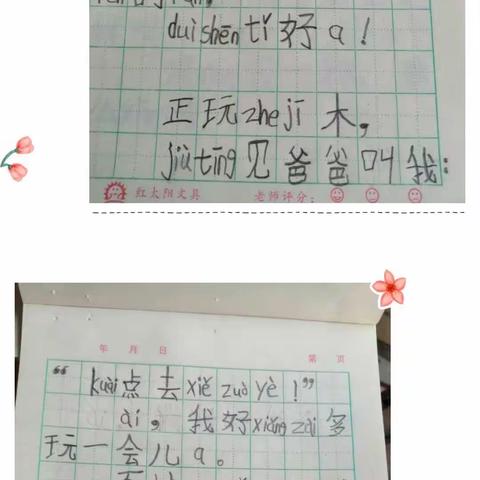 duì shēn tǐ 好 a！
正玩 zhe jī 木，
jiù tīng 见爸爸叫我：
红太阳文具 老师评分：
年 月 日 第 页
“kuài 点去 xiě zuò yè！”
ài，我好 xiǎng zài 多
玩一会儿 a。